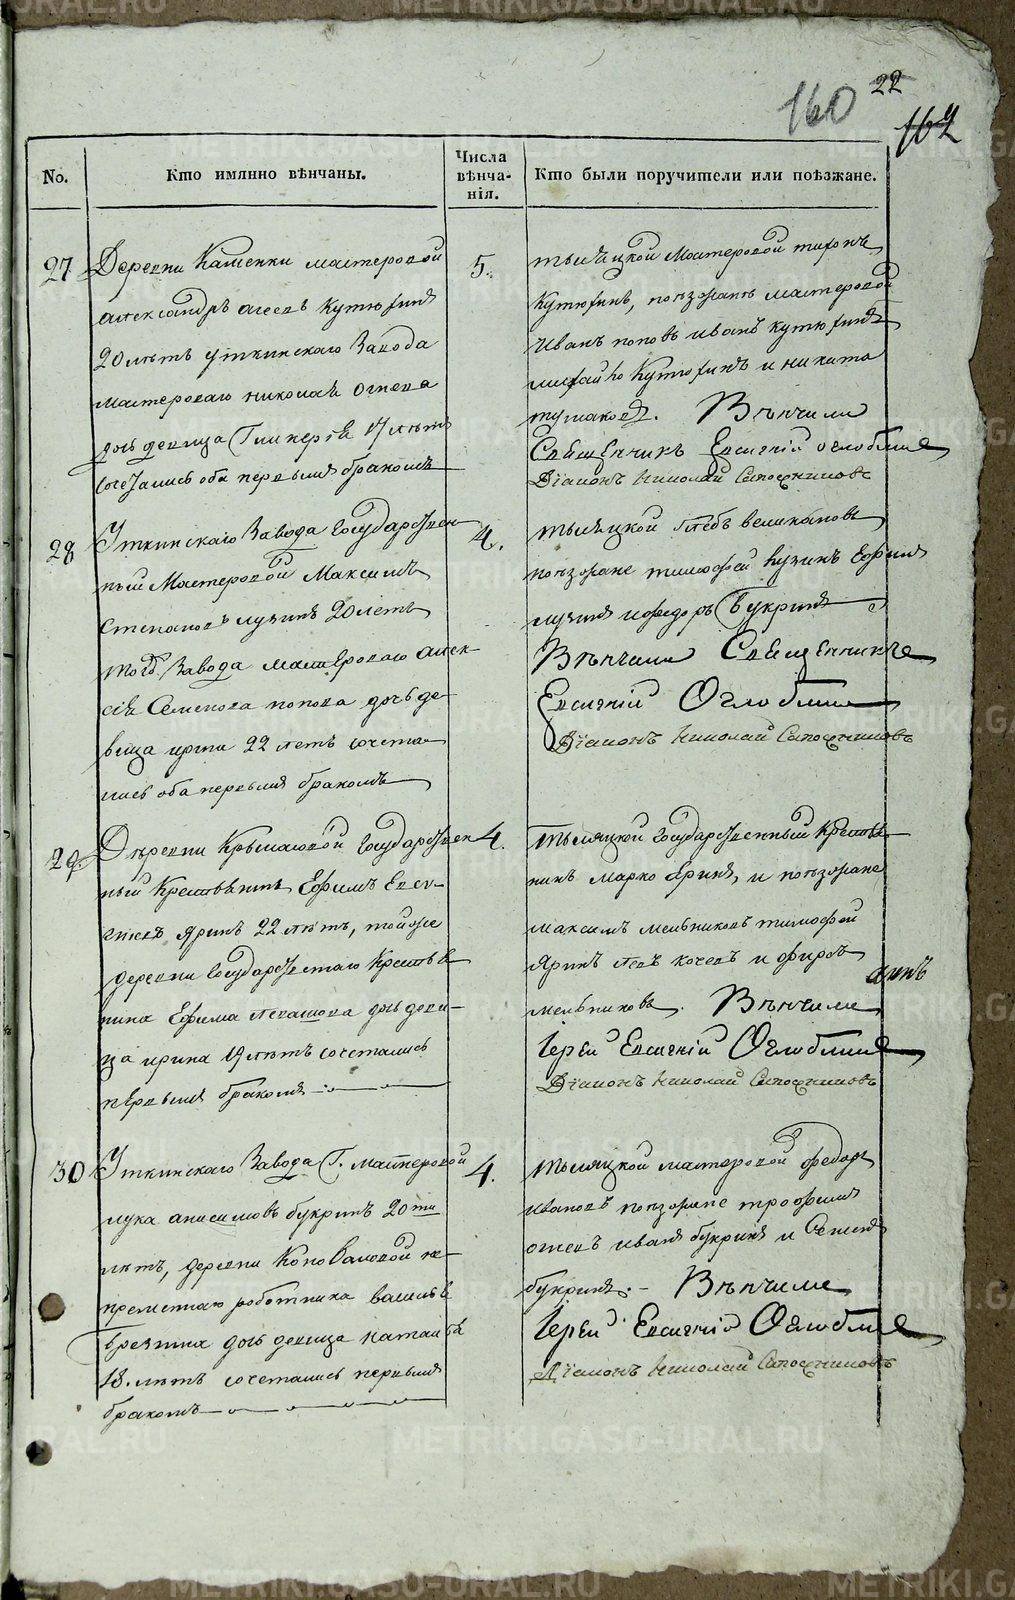 160
22
162
No.
Кто имянно вѣнчаны.
Числа вѣнча-нія.
Кто были поручители или поѣзжане.
27
Деревни Каменки мастеровой
Александръ Агеевъ Кутюхинъ
20 лѣтъ уткинскаго завода
мастероваго николая Огнева
дочь девица Гликерія 17 лѣтъ
сочетались оба первымъ бракомъ
5.
тысяцкой Мастеровой тихонъ
Кутюхинъ, поѣзжане мастеровой
Иванъ поповъ иванъ кутюхинъ
михайло Кутюхинъ и никита
Вѣнчали
Священникъ Евгеній Оглоблинъ
Діаконъ Николай Сапожниковъ
28
Уткинскаго Завода Государствен
ный Мастеровой Максимъ
Степановъ лузинъ 20 летъ
того Завода мастероваго алек-
сія Семенова попова дочь де-
вица ирина 22 летъ сочета-
лись оба первымъ бракомъ
4.
тысяцкой Глебъ великановъ
поѣзжане тимофей Кузинъ Ефимъ
лузинъ и федоръ Букринъ
Вѣнчали Священникъ
Евгеній Оглоблинъ
Діаконъ Николай Сапожниковъ
29.
Деревни Крымаковой государствен
ный Крестьянинъ Ефимъ
Яринъ 22 лѣтъ, тойже
деревни государственнаго Крестья
нина Ефима дочь деви-
ца ирина 19 лѣтъ сочетались
первымъ бракомъ
4.
Тысяцкой государственный Крестья
нинъ Марко Яринъ, и поѣзжане
максимъ мельниковъ тимофей
Яринъ Левъ кочевъ и
мельниковъ. Вѣнчали
Іерей Евгеній Оглоблинъ
Діаконъ Николай Сапожниковъ
30
Уткинскаго Завода Г. мастеровой
лука анисимовъ букринъ 20ти
лѣтъ, деревни Коноваловой не-
пременнаго работника василья
дочь девица наталья
18. лѣтъ сочетались первымъ
бракомъ
4.
тысяцкой мастеровой федоръ
ивановъ поѣзжане трофимъ
огневъ иванъ букринъ и Семенъ
букринъ. - Вѣнчали
Іерей Евгеній Оглоблинъ
Діаконъ Николай Сапожниковъ
METRIKI.GASO-URAL.RU